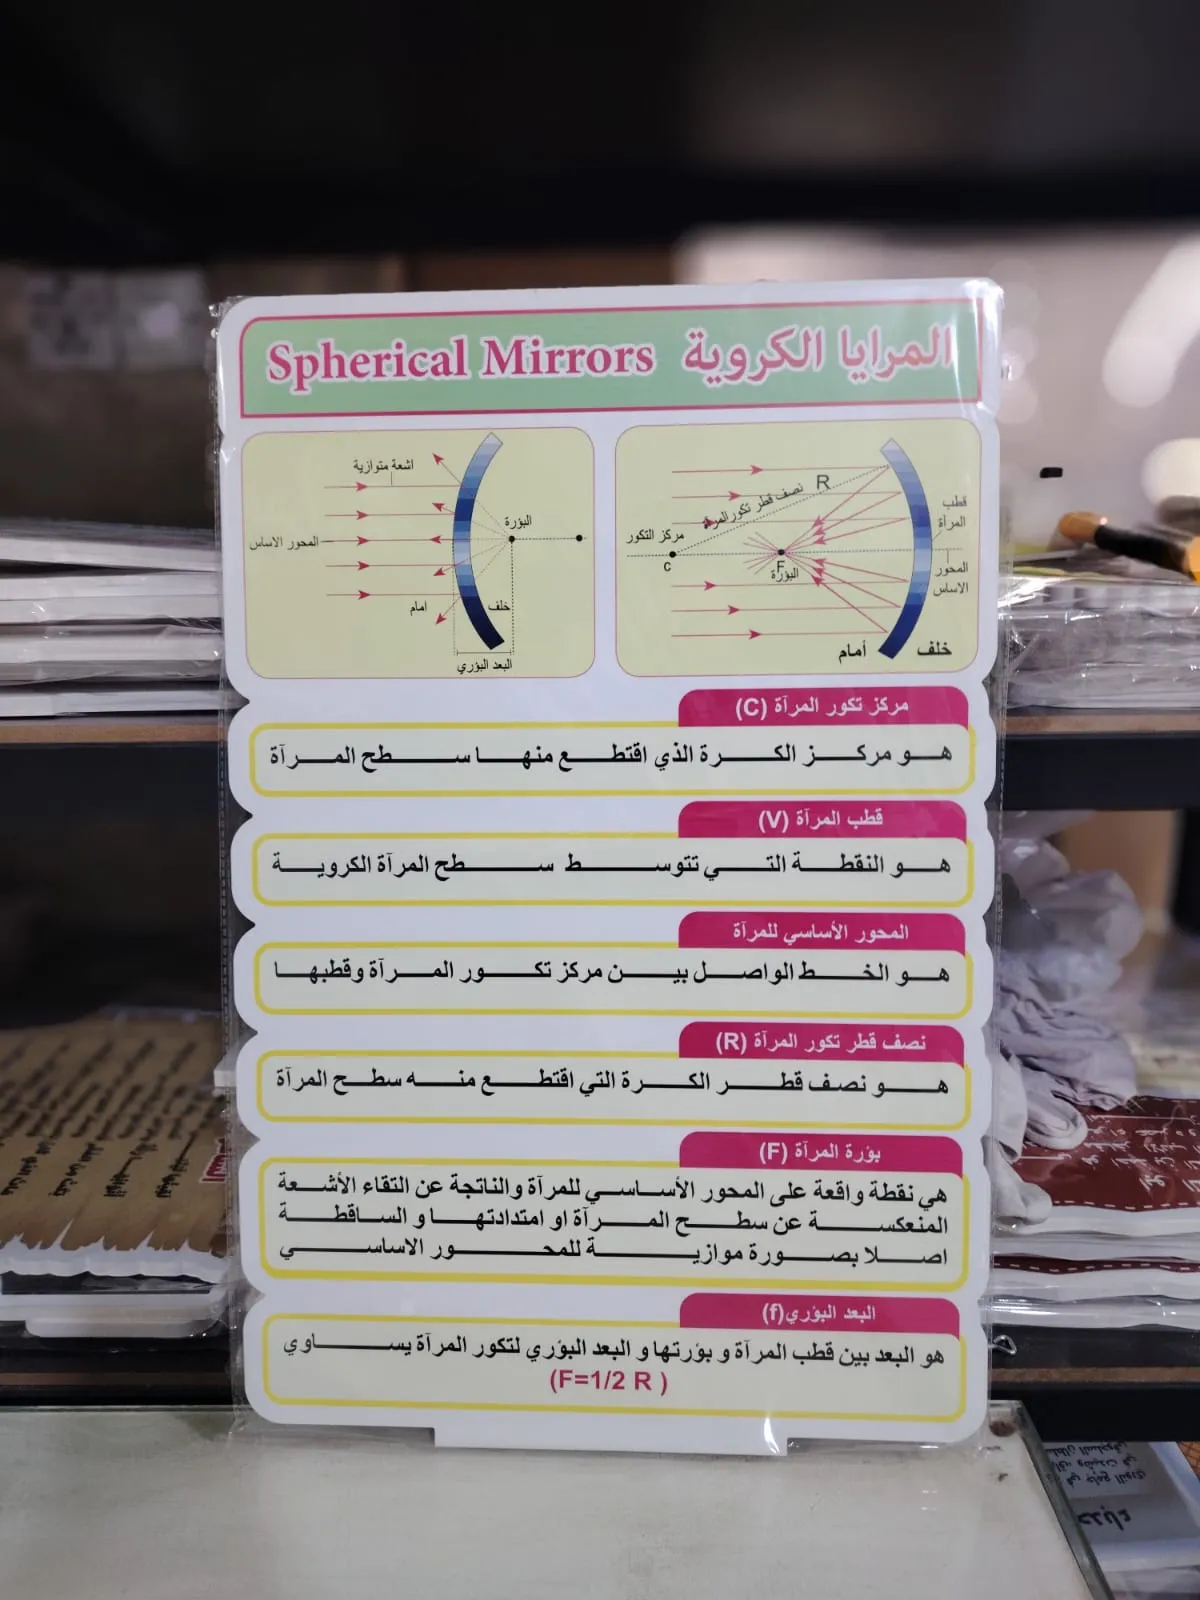 المرايا الكروية Spherical Mirrors
نصف قطر تكور المرآة R
قطب
المرآة
مركز التكور
C
F
البؤرة
المحور
الاساس
أمام
خلف
اشعة متوازية
البؤرة
المحور الاساس
امام
خلف
البعد البؤري
مركز تكور المرآة (C)
هو مركز الكرة الذي اقتطع منها سطح المرآة
قطب المرآة (V)
هو النقطة التي تتوسط سطح المرآة الكروية
المحور الأساسي للمرآة
هو الخط الواصل بين مركز تكور المرآة وقطبها
نصف قطر تكور المرآة (R)
هو نصف قطر الكرة التي اقتطع منه سطح المرآة
بؤرة المرآة (F)
هي نقطة واقعة على المحور الأساسي للمرآة والناتجة عن التقاء الأشعة
المنعكسة عن سطح المرآة او امتدادتها و الساقطة
اصلا بصورة موازية للمحور الاساسي
البعد البؤري(f)
هو البعد بين قطب المرآة و بؤرتها و البعد البؤري لتكور المرآة يساوي
(F=1/2 R )